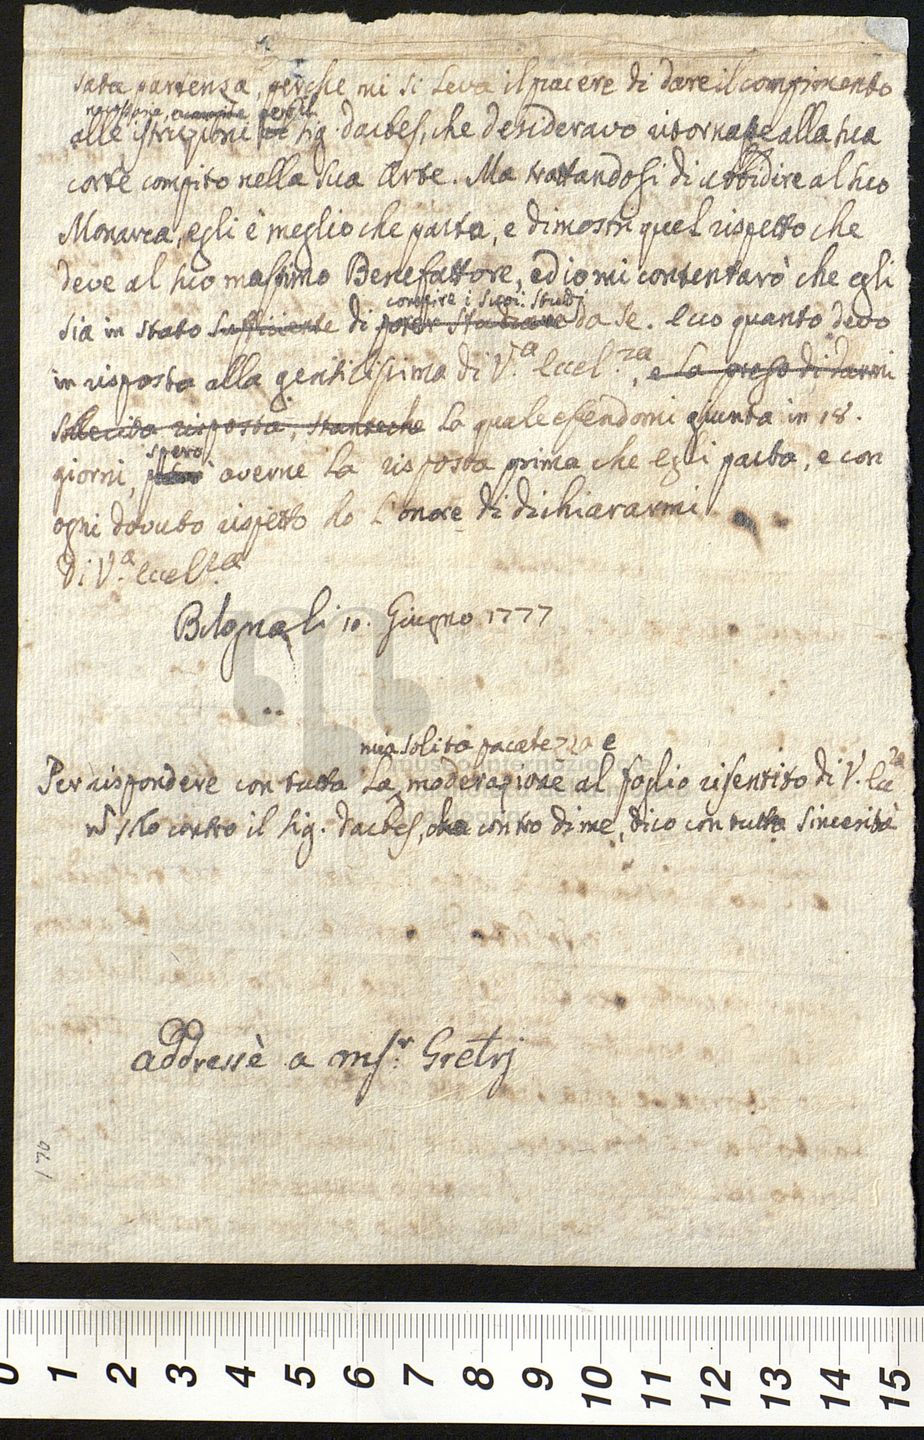 sata partenza, perche mi si leva il piacere di dare il compimento
necessarie, per il
alle istruzioni Sig. Dacbes, che desideravo ritornasse alla sua
corte compito nella sua Arte. Ma trattandosi di ubbidire al suo
Monarca, egli è meglio che parta, e dimostri quel rispetto che
deve al suo massimo Benefattore, ed io mi contentarò che egli
compire i suoi Studj
sia in stato sufficiente di poter studiare da se. Ecco quanto devo
in risposta alla gentilissima di V.a Eccel.za, e la prego di darmi
sollecita risposta, stanteche la quale essendomi giunta in 18.
spero
giorni, averne la risposta prima che egli parta, e con
ogni dovuto rispetto ho l'onore di dichiararmi
Di V.a Eccel.za
Bologna li 10. Giugno 1777
mia solita pacatezza e
Per rispondere con tutta la moderazione al foglio risentito di V. Ecc.za
contro il Sig. Dacbes, che contro di me, dico con tutta sincerità
museo internazionale
addressè a Msr. Gretrj
170
0 1 2 3 4 5 6 7 8 9 10 11 12 13 14 15